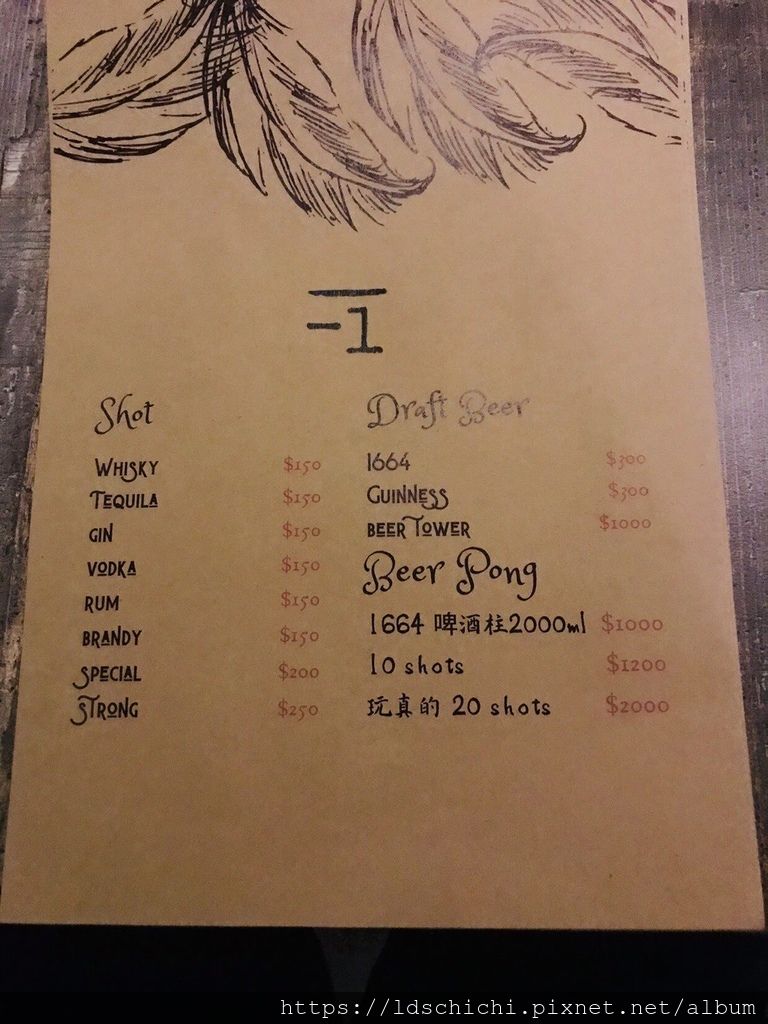 -1
Shot
Whisky $150
Tequila $150
Gin $150
Vodka $150
Rum $150
Brandy $150
Special $200
Strong $250
Draft Beer
1664 $300
Guinness $300
Beer Tower $1000
Beer Pong
1664 啤酒柱2000ml $1000
10 shots $1200
玩真的 20 shots $2000
https://ldschichi.pixnet.net/album